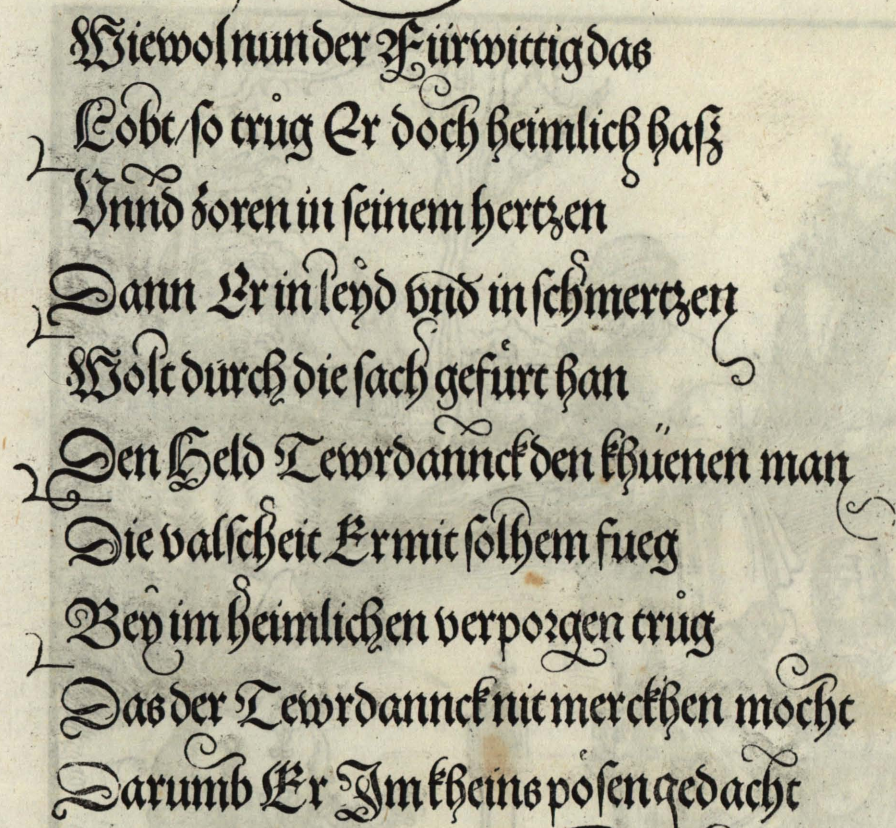 Wiewol nun der Fürwittig das
Lobt / so trůg Er doch heimlich hasʒ
Vnnd zoren in seinem hertzen
Dann Er in leyd vnd in schmertzen
Wolt durch die sach gefürt han
Den Held Tewrdannck den khüenen man
Die valscheit Er mit solhem fueg
Bey im heimlichen verporgen trůg
Das der Tewrdannck nit merckhen mocht
Darumb Er Im kheins pösen gedacht